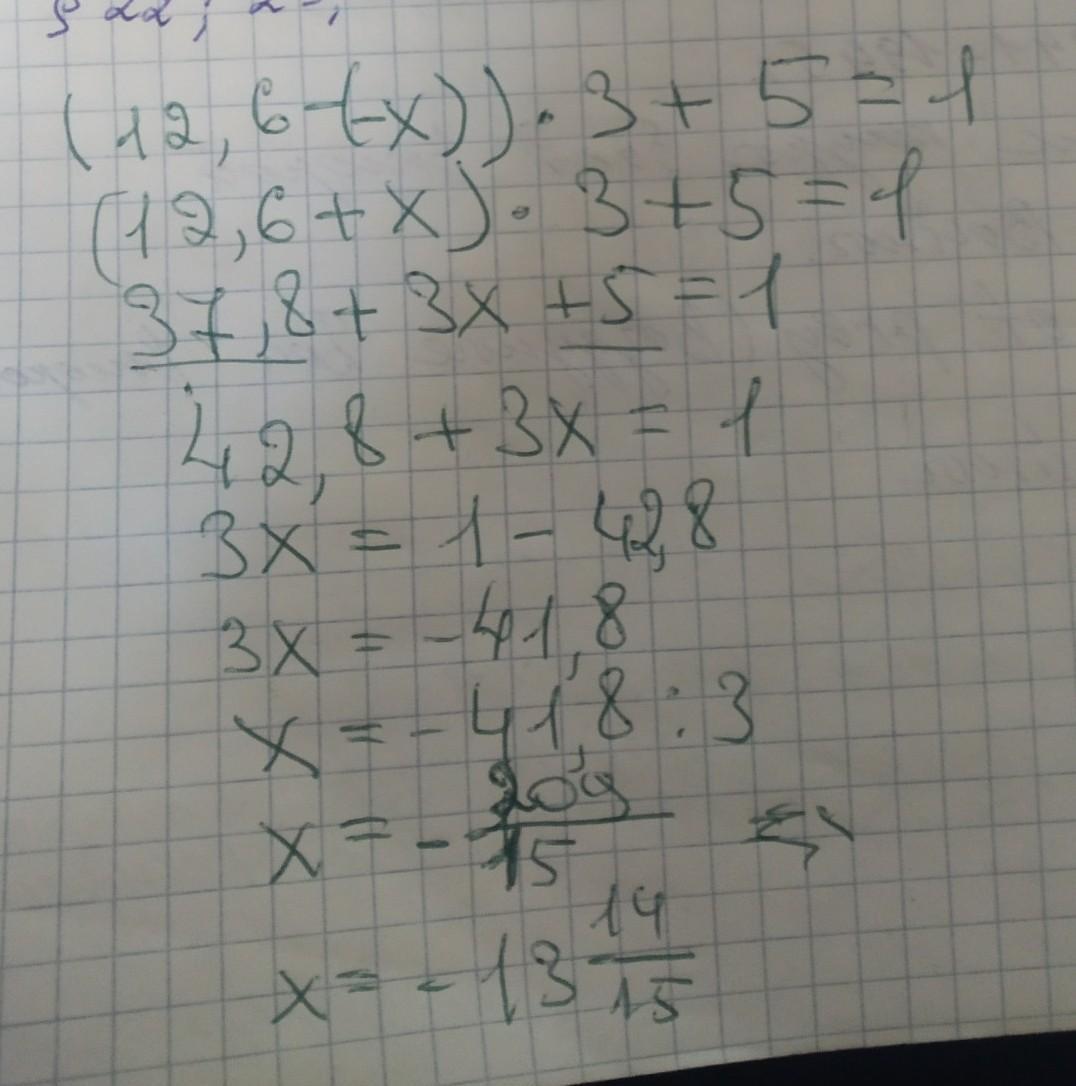 (12,6-(-x))·3+5=1
(12,6+x)·3+5=1
37,8+3x+5=1
42,8+3x=1
3x=1-42,8
3x=-41,8
x=-41,8:3
x=-209/15
x=-13 14/15